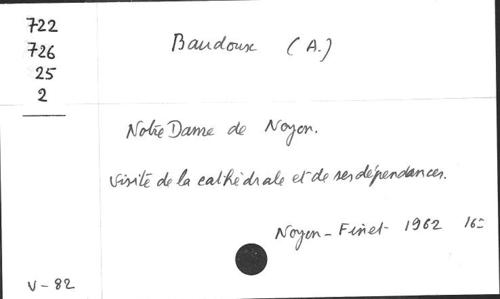 722
726
25
2
Baudoux (A.)
Notre Dame de Noyon.
Visite de la cathédrale et de ses dépendances.
Noyon - Finet 1962 16°
V - 82